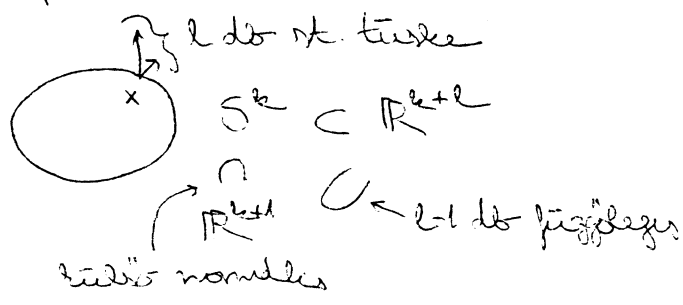 l db st. tüske
x
S^k ⊂ R^{k+l}
∩ ∪
R^{k+1} l-1 db függőleges
külső normális